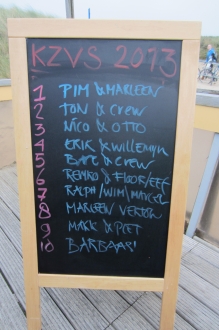 KZVS 2013
1 PIM & MARLEEN
2 TON & CREW
3 NICO & OTTO
4 ERIK & Willemijn
5 BART & CREW
6 REMKO & FLOOR/EEF
7 RALPH/WIM/MARCEL
8 MARLEEN
9 MARK & PIET
10 BARBAAS!